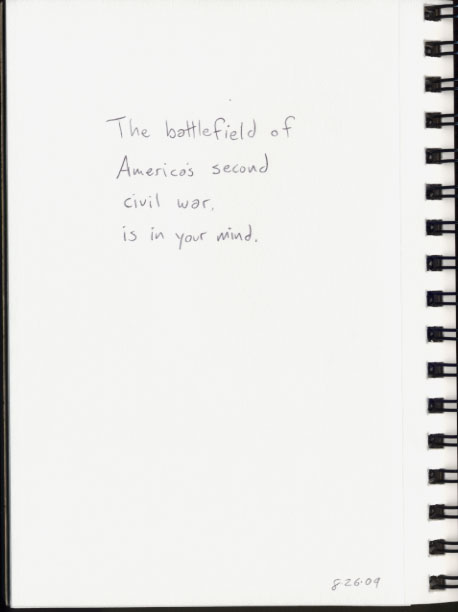 The battlefield of
America's second
civil war,
is in your mind.
8·26·09